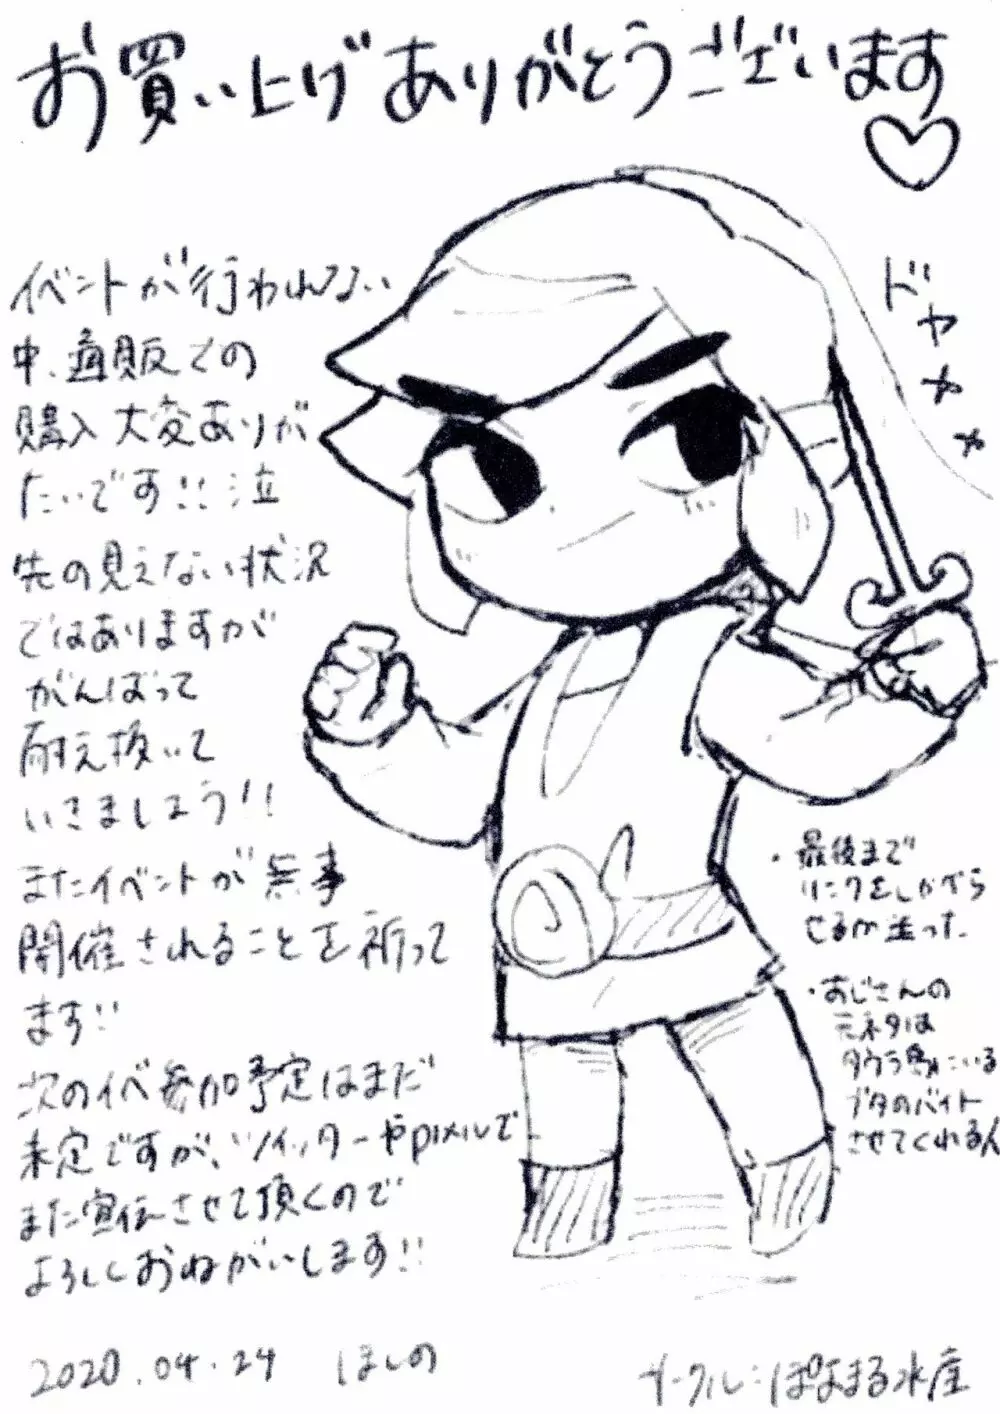 お買い上げありがとうございます♡
イベントが行われない
中、通販での
購入大変ありが
たいです!!泣
先の見えない状況
ではありますが
がんばって
耐え抜いて
いきましょう!!
またイベントが無事
開催されることを祈って
ます!!
次のイベ参加予定はまだ
未定ですが、ツイッターやpixivで
また宣伝させて頂くので
よろしくおねがいします!!
2020.04.24 ほしの
ドヤァァァ
・最後まで
リンクをしか
せるか迷った
・おじさんの
元ネタは
タウラ島にいる
ブタのバイト
させてくれる人
サークル:ぽよまる水産